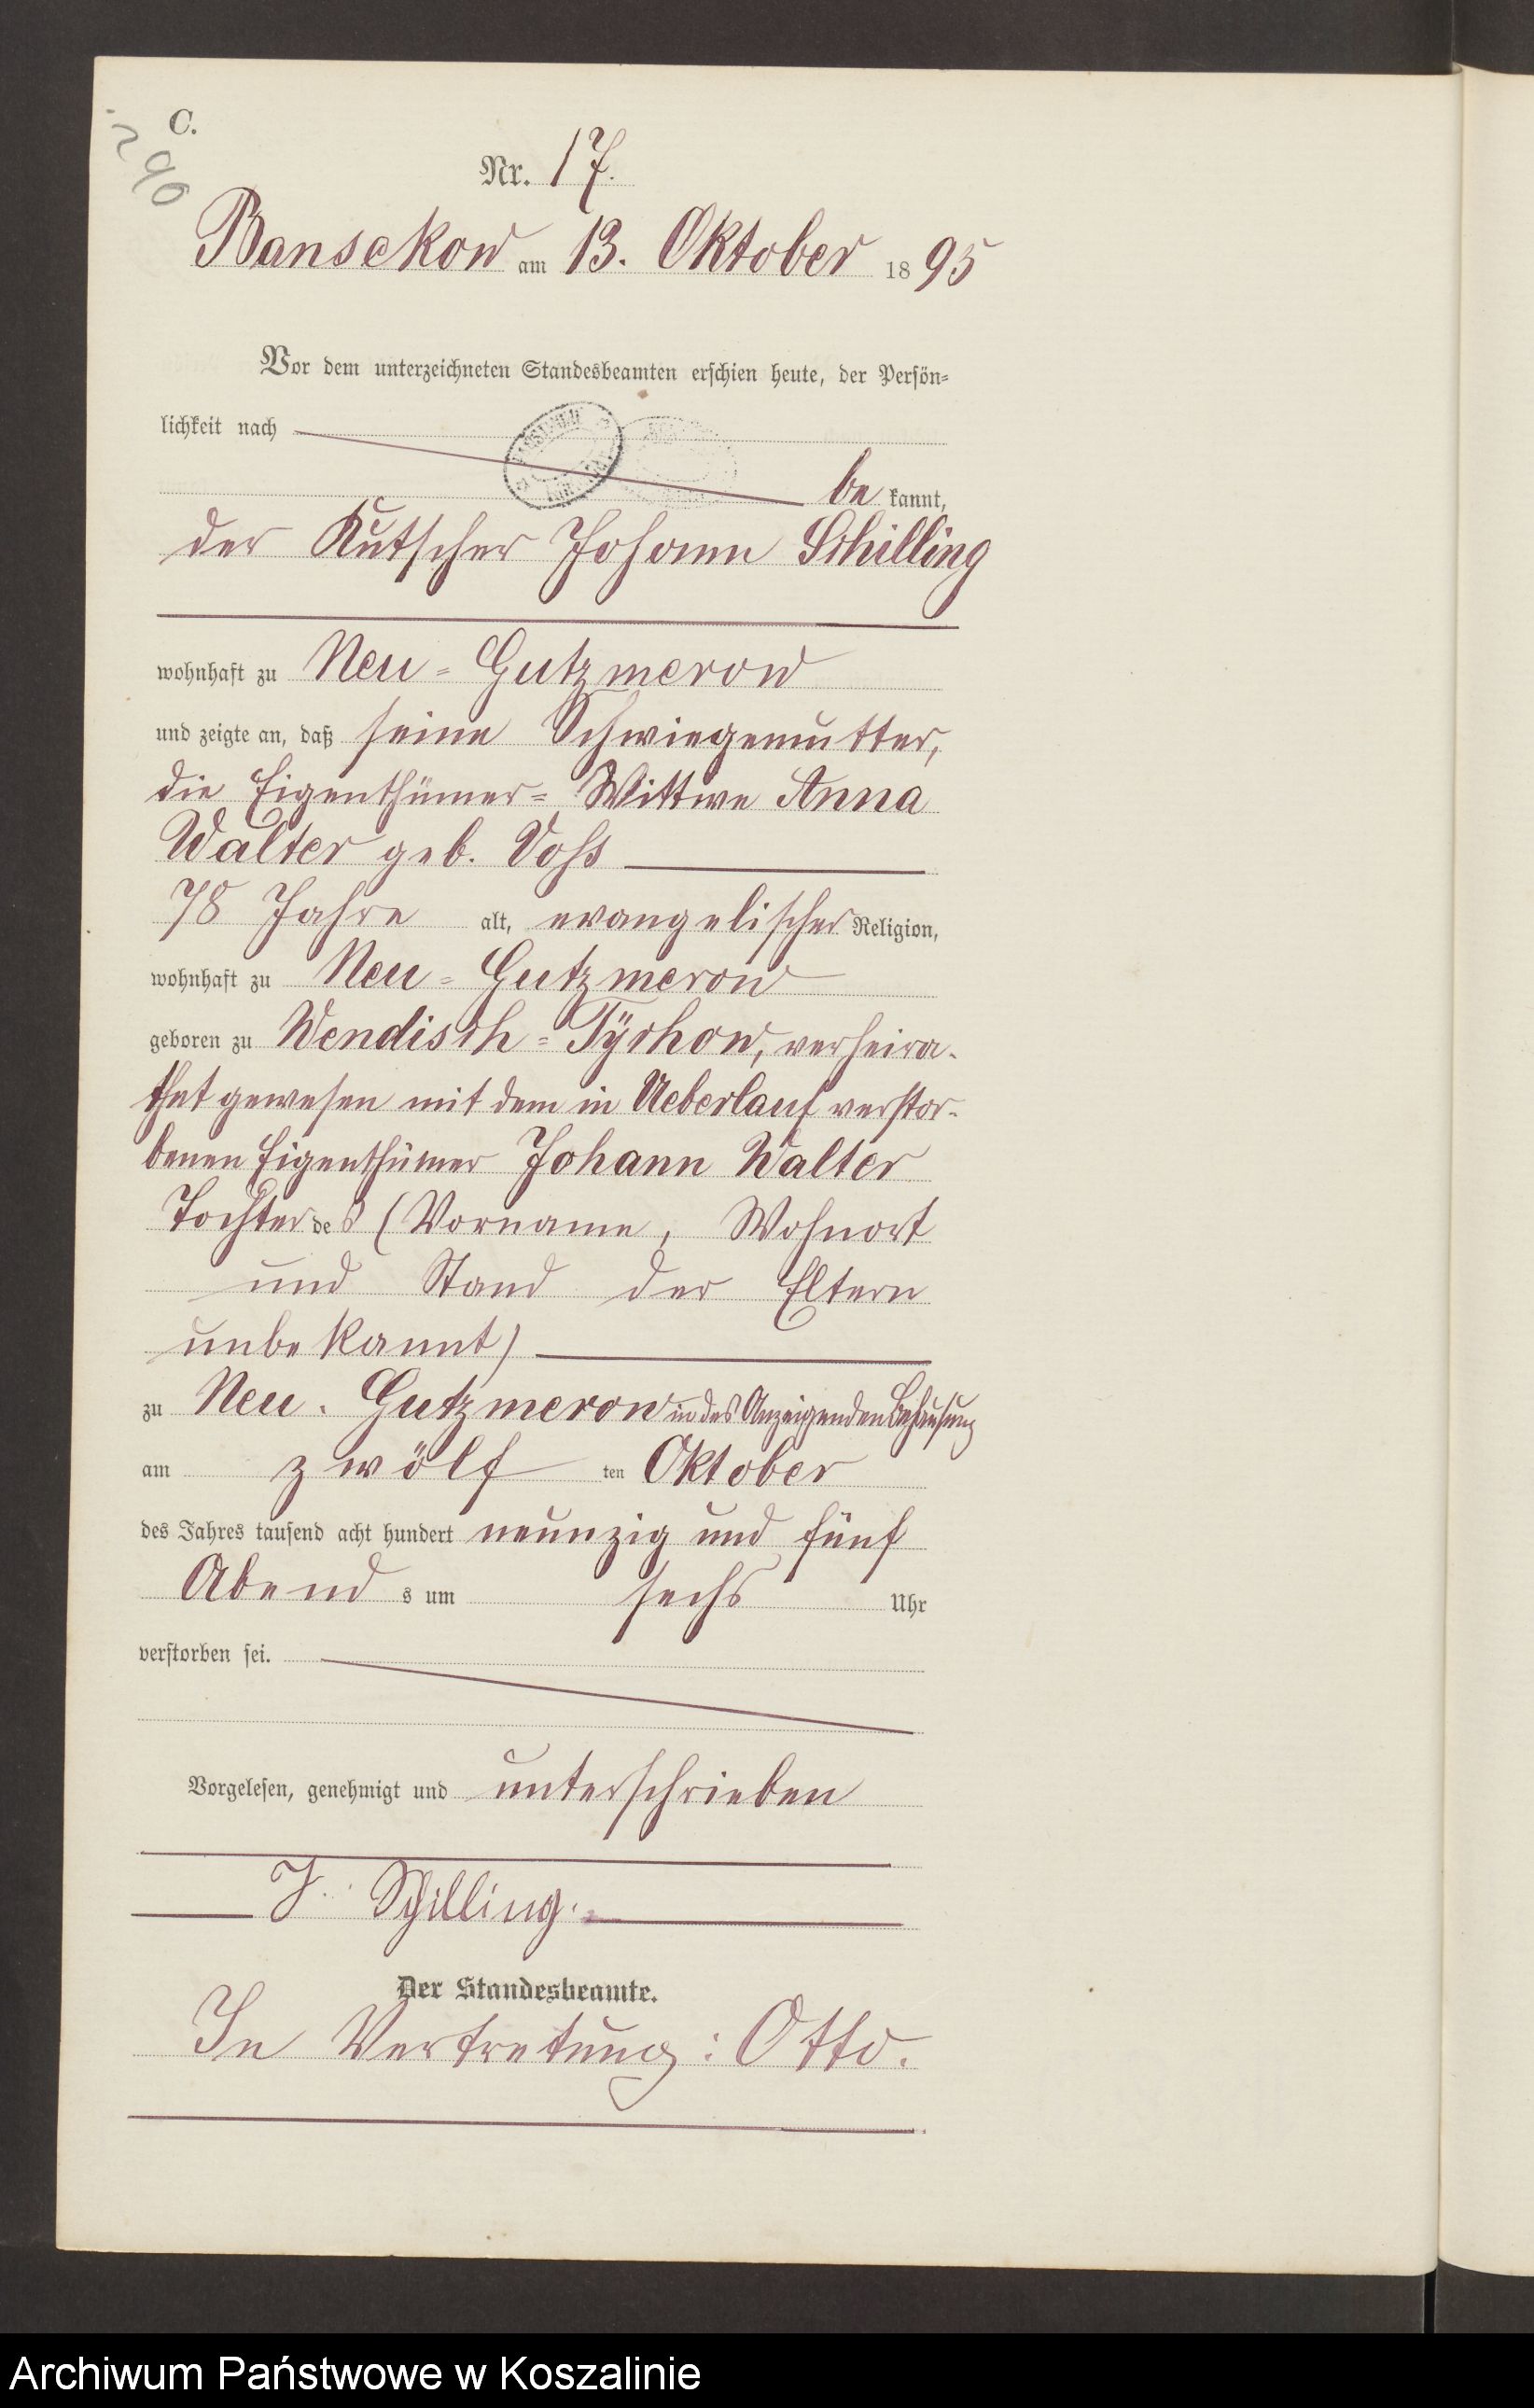 C.
290
Nr. 17.
Bansekow am 13. Oktober 1895
Vor dem unterzeichneten Standesbeamten erschien heute, der Persön-
lichkeit nach
be kannt,
der Kutscher Johann Schilling
wohnhaft zu Neu-Gutzmerow
und zeigte an, daß seine Schwiegermutter,
die Eigenthümer-Wittwe Anna
Walter geb. Voss
78 Jahre alt, evangelischer Religion,
wohnhaft zu Neu-Gutzmerow
geboren zu Wendisch-Tÿchow, verheira-
thet gewesen mit dem in Ueberlauf verstor-
benen Eigenthümer Johann Walter
Tochter des (Vorname, Wohnort
und Stand der Eltern
unbekannt)
zu Neu-Gutzmerow in des Anzeigenden Behausung
am zwölf ten Oktober
des Jahres tausend acht hundert neunzig und fünf
Abend s um sechs Uhr
verstorben sei.
Vorgelesen, genehmigt und unterschrieben
J. Schilling.
Der Standesbeamte.
In Vertretung: Otto.
Archiwum Państwowe w Koszalinie